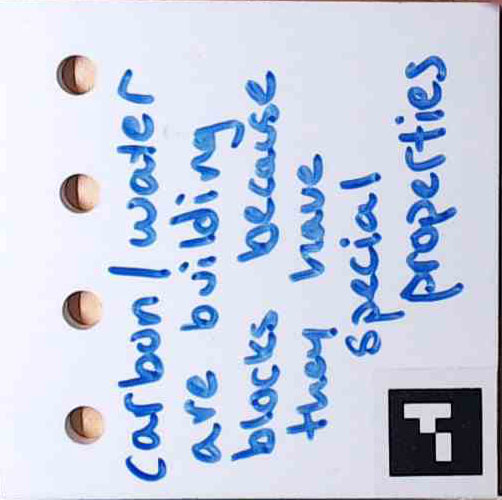 carbon/water
are building
blocks because
they have
special
properties